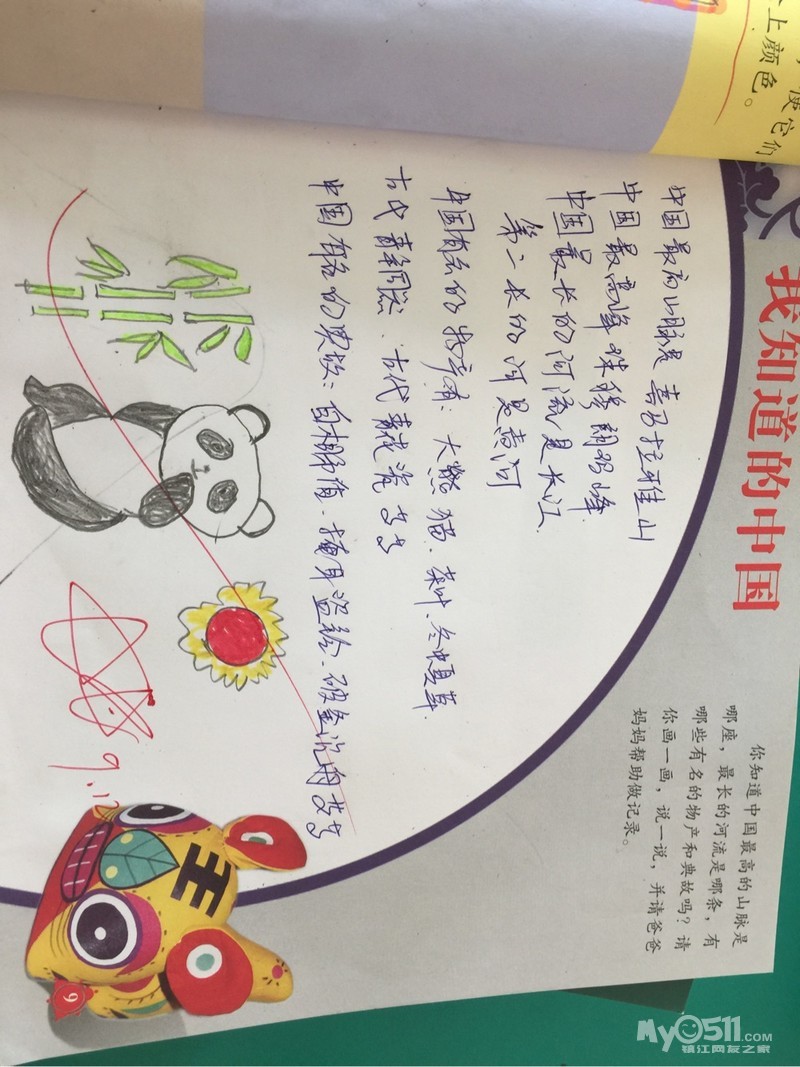 使它们
上颜色。
我知道的中国
你知道中国最高的山脉是
哪座，最长的河流是哪条，有
哪些有名的物产和典故吗？请
你画一画，说一说，并请爸爸
妈妈帮助做记录。
中国最高山脉是喜马拉雅山
中国最高峰珠穆朗玛峰.
中国最长的河流是长江.
第二长的河是黄河
中国有名的物产有：大熊猫、茶叶、冬虫夏草.
古代青铜器、古代青花瓷等等
中国有名的典故：自相矛盾、掩耳盗铃、破釜沉舟等等
王
9
MY0511.COM
镇江网友之家